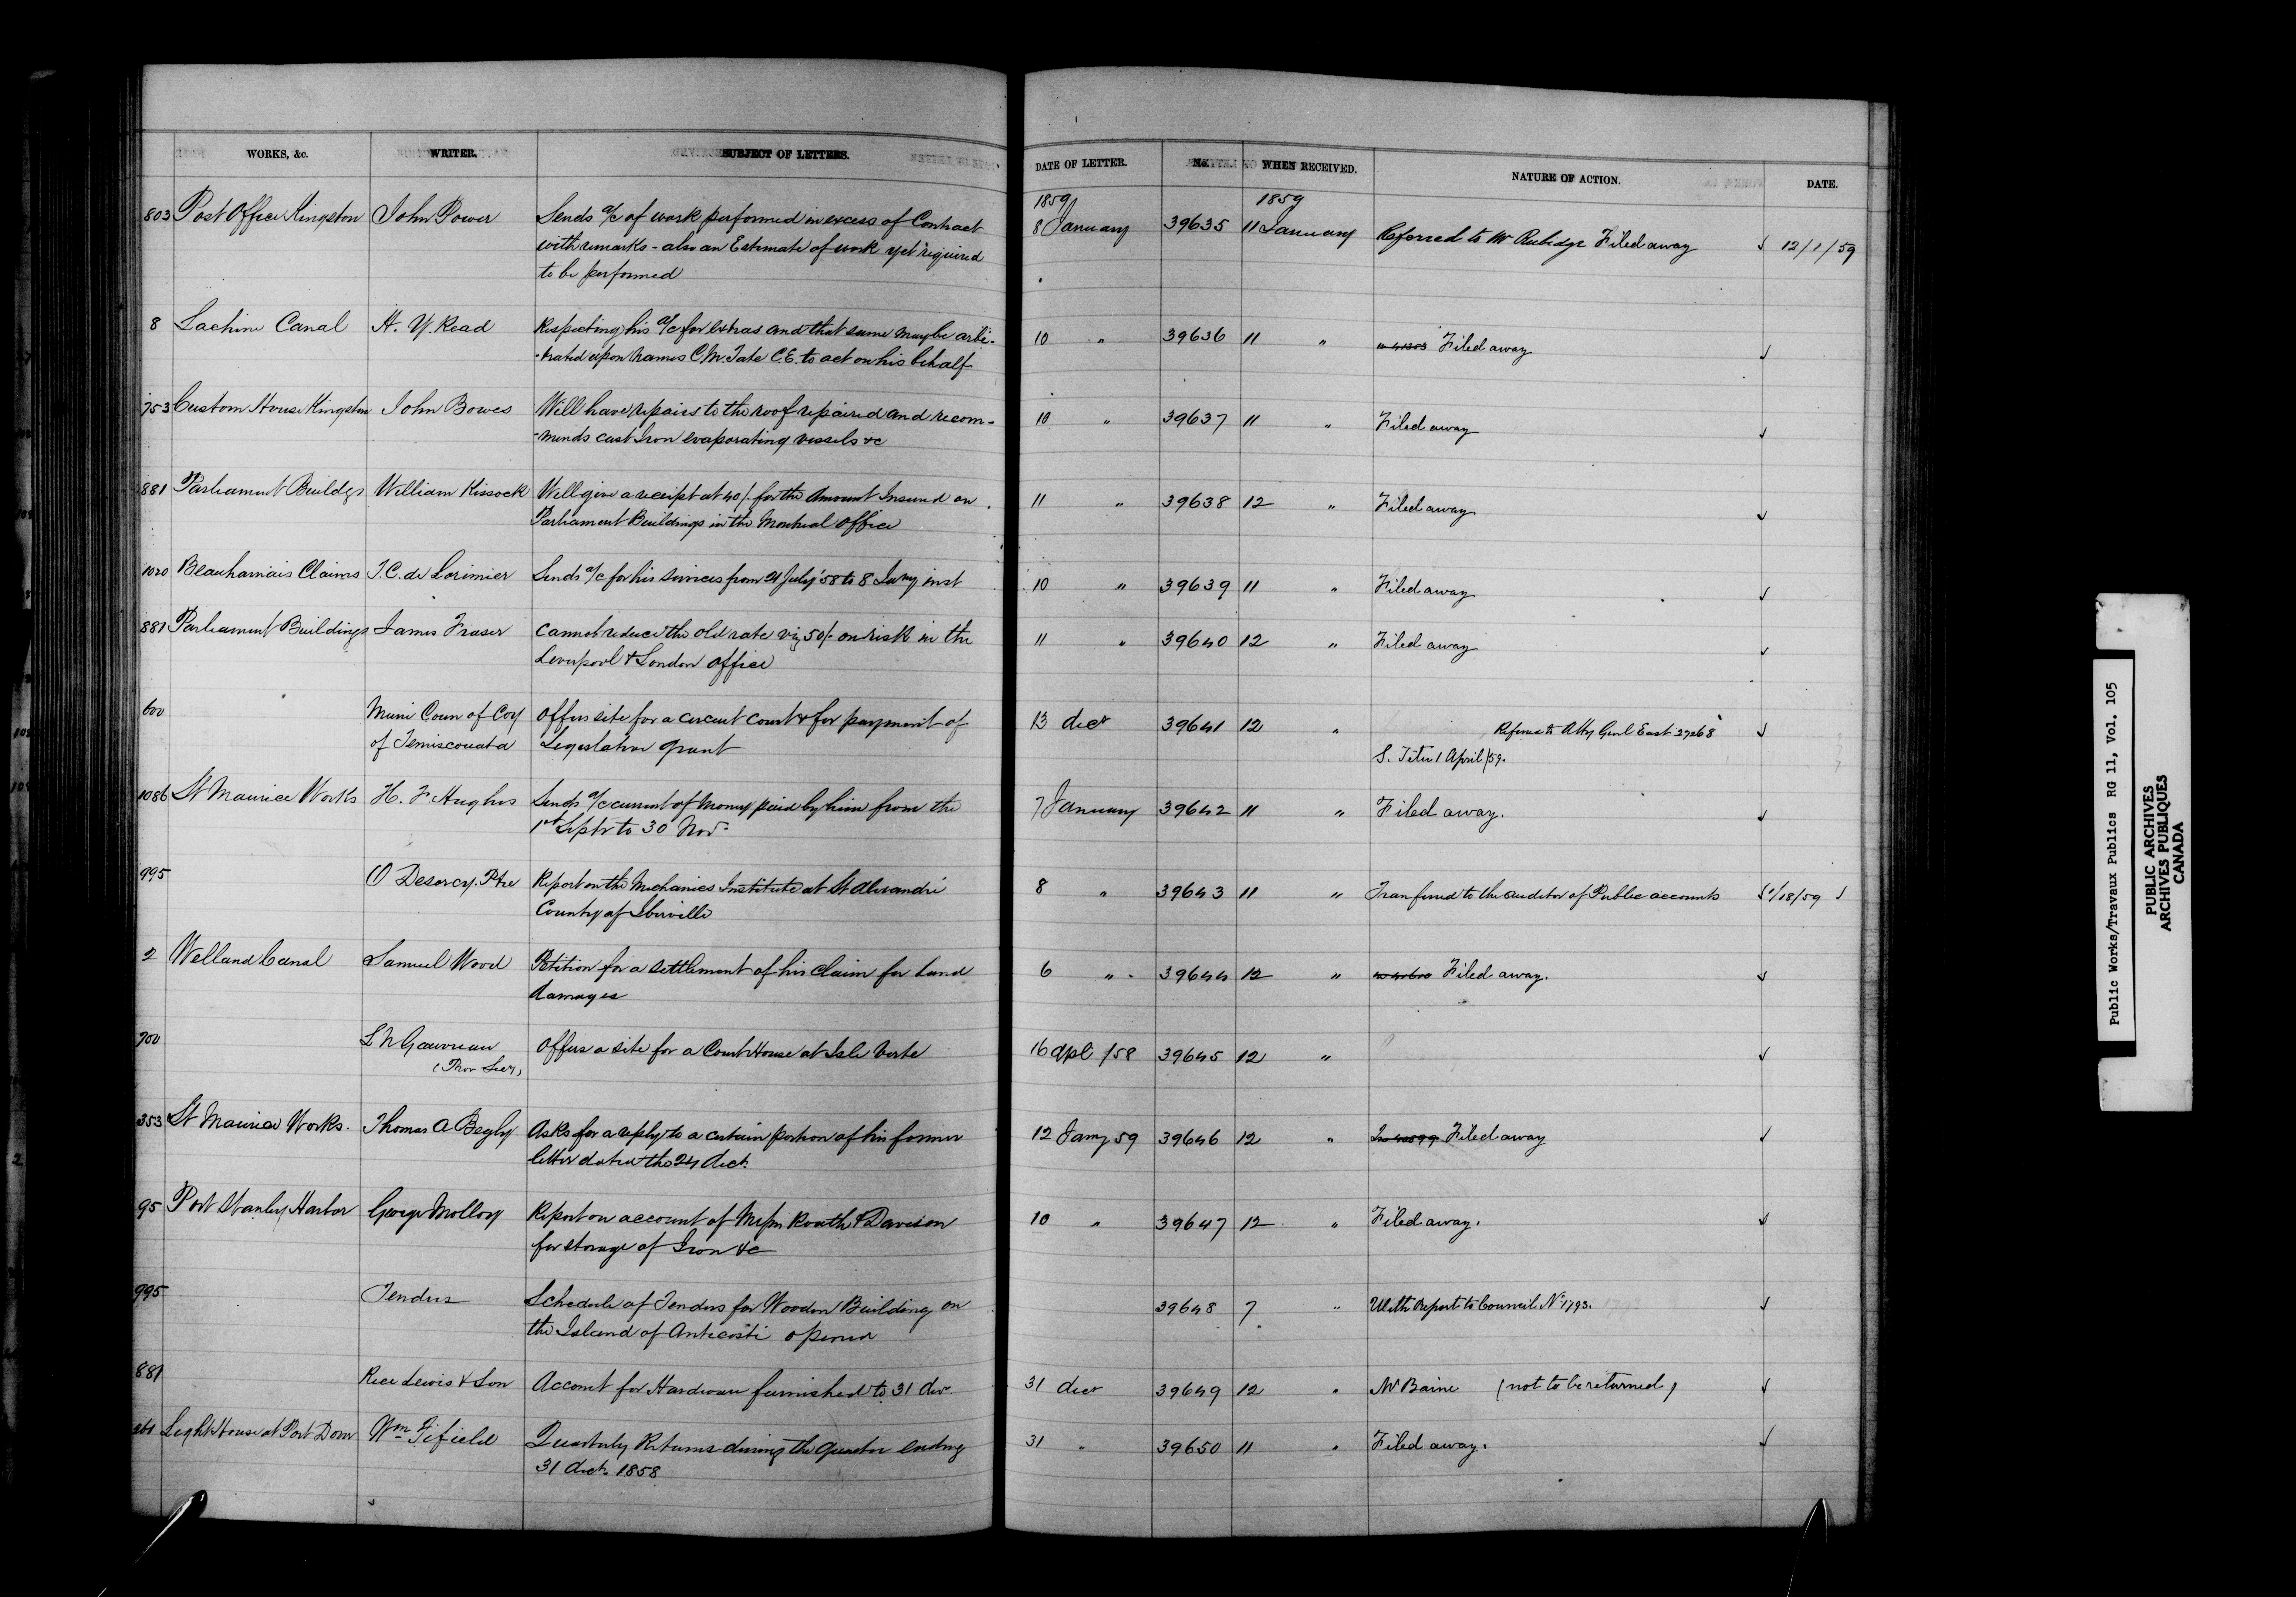 WORKS, &c. WRITER. SUBJECT OF LETTERS. DATE OF LETTER. No. WHEN RECEIVED. NATURE OF ACTION. DATE.
1859 1859
803 Post Office Kingston John Power Sends a/c of work performed in excess of Contract 8 January 39635 11 January Referred to Mr Rubidge Filed away ✓ 12/1/59
with remarks - also an Estimate of work yet required
to be performed
8 Lachine Canal H. Y. Read Respecting his a/c for extras and that same may be arbi- 10 " 39636 11 " Filed away ✓
-trated upon names C.M. Tate C.E. to act on his behalf
753 Custom House Kingston John Bowes Will have repairs to the roof repaired and recom- 10 " 39637 11 " Filed away ✓
-mends cast Iron evaporating vessels &c
881 Parliament Buildgs William Kissock Will give a receipt at 40/. for the Amount Insured on 11 " 39638 12 " Filed away ✓
Parliament Buildings in the Montreal office
1020 Beauharnais Claims T.C. de Lorimier Sends a/c for his services from 21 July '58 to 8 Jany inst 10 " 39639 11 " Filed away ✓
881 Parliament Buildings James Fraser Cannot reduce the old rate viz 50/- on risk in the 11 " 39640 12 " Filed away ✓
Liverpool & London office
600 Muni Coun of Coy Offers site for a circuit court & for payment of 13 decr 39641 12 " Referred to Atty Genl East 27268 ✓
of Temiscouata Legislative grant S. Tetu 1 April/59.
1086 St Maurice Works H. F Hughes Sends a/c current of money paid by him from the 7 January 39642 11 " Filed away. ✓
1st Septr to 30 Novr
995 O Desorcy. Ptre Report on the Mechanics Institute at St Alexandre 8 " 39643 11 " Tranferred to the auditor of Public accounts /18/59 ✓
County of Iberville
2 Welland Canal Samuel Wood Petition for a settlement of his claim for Land 6 " 39644 12 " Filed away. ✓
damages
700 L N Gauvreau Offers a site for a Court House at Isle Verte 16 Apl /58 39645 12 " ✓
(Prov Secy)
353 St Maurice Works. Thomas A Begly Asks for a reply to a certain portion of his former 12 Jany 59 39646 12 " In 40599 Filed away ✓
letter dated the 24 decr.
95 Port Stanley Harbor George Molloy Report on account of Messrs Routh & Davison 10 " 39647 12 " Filed away. ✓
for storage of Iron &c
995 Tenders Schedule of Tenders for Wooden Building on 39648 7 " With Report to Council No 1793. ✓
the Island of Anticosti opened
881 Rice Lewis & Son Account for Hardware furnished to 31 decr. 31 decr 39649 12 " Mr Baine (not to be returned) ✓
261 Light House at Port Dover Wm Fifield Quarterly Returns during the quarter ending 31 " 39650 11 " Filed away. ✓
31 decr. 1858
Public Works/Travaux Publics RG 11, Vol. 105
PUBLIC ARCHIVES
ARCHIVES PUBLIQUES
CANADA